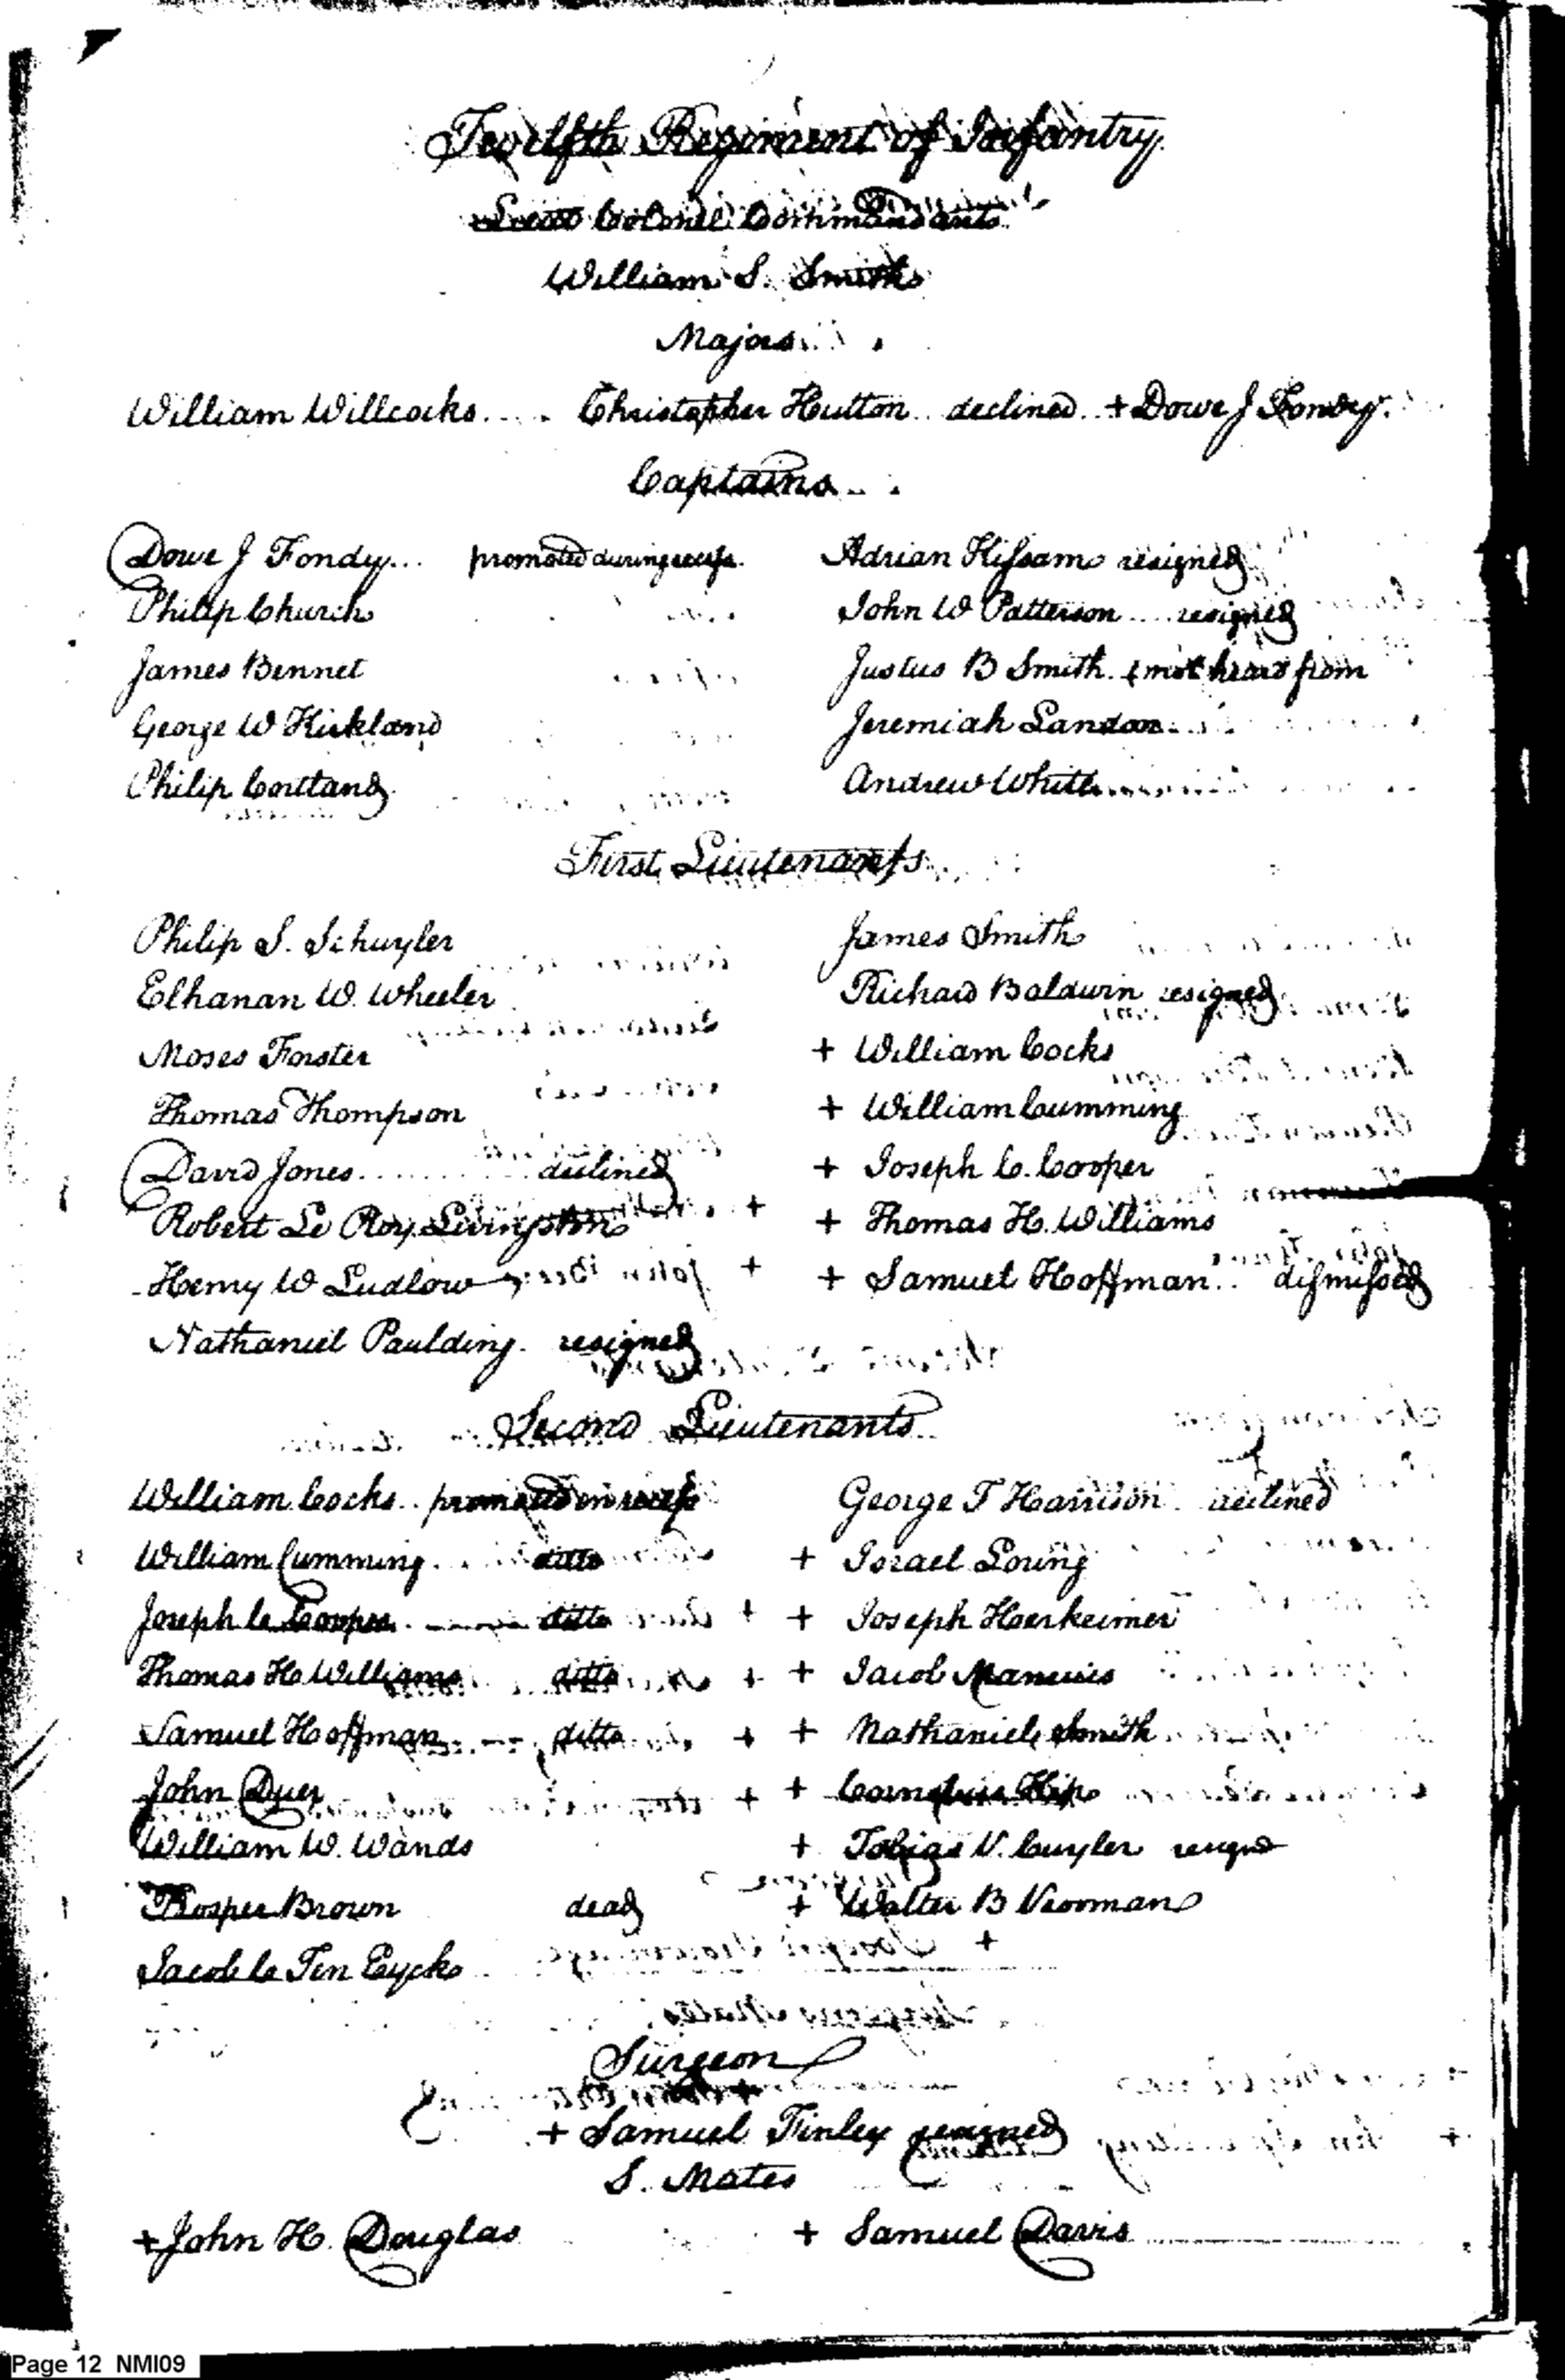 Twelfth Regiment of Infantry
Lieut Colonel Commandants
William S. Smith
Majors
William Willcocks Christopher Hutton declined + Dowe J Fondey
Captains
Dowe J Fondy promoted during recess Adrian Kissam resigned
Philip Church John W Patterson resigned
James Bennet Justus B Smith not heard from
George W Kirkland Jeremiah Landon
Philip Cortland Andrew White
First Lieutenants
Philip S. Schuyler James Smith
Elhanan W. Wheeler Richard Baldwin resigned
Moses Forster + William Cocks
Thomas Thompson + William Cumming
David Jones declined + Joseph C. Cooper
Robert Le Roy Livingston + Thomas H. Williams
Henry W Ludlow + Samuel Hoffman dismissed
Nathaniel Paulding resigned
Second Lieutenants
William Cocks promoted in recess George T Harrison declined
William Cumming ditto + Israel Loring
Joseph C Cooper ditto + Joseph Herkeimer
Thomas H Williams ditto + Jacob Mancius
Samuel Hoffman ditto + Nathaniel Smith
John Duer + Cornelius Kip
William W. Wands + Tobias V. Cuyler
Prosper Brown dead + Walter B Vrooman
Jacob C Ten Eyck
Surgeon
+ Samuel Finley resigned
S. Mates
+ John H. Douglas + Samuel Davis
Page 12 NMI09